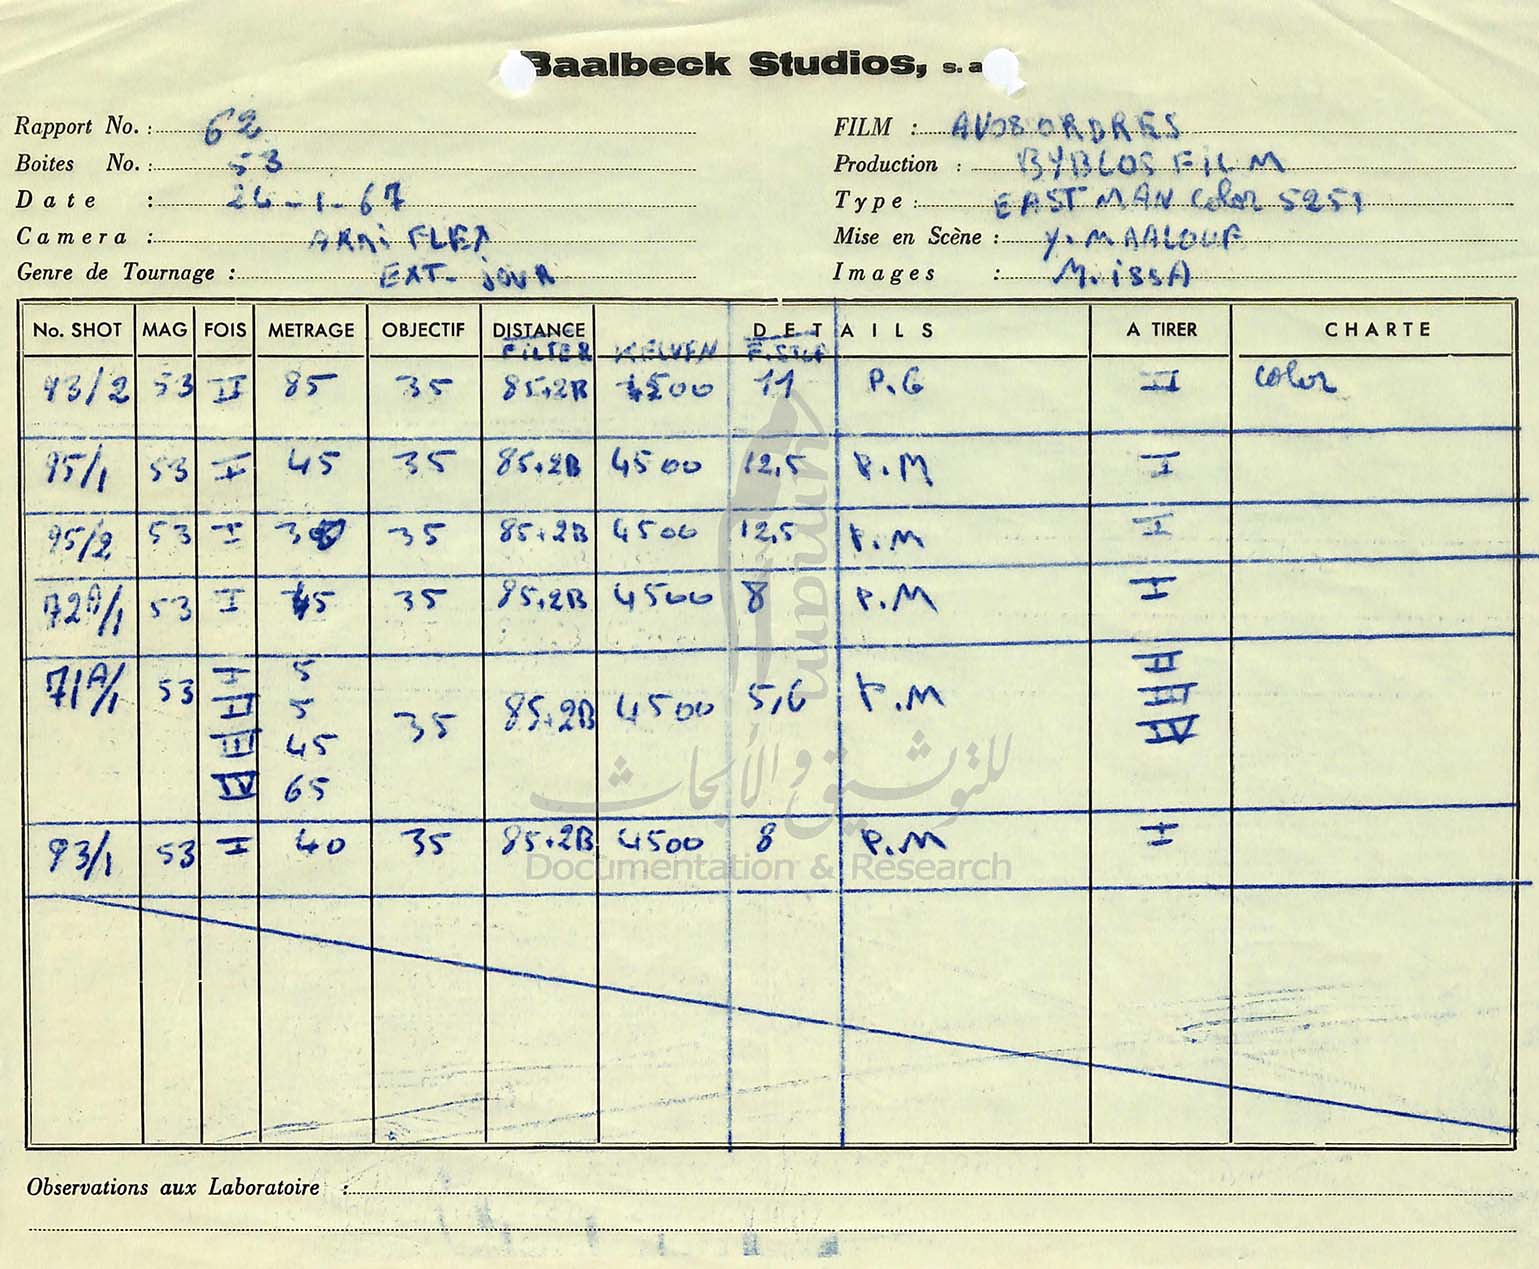 Baalbeck Studios, s. a
Rapport No. : 62
FILM : AVOS ORDRES
Boites No. : 53
Production : BYBLOS FILM
Date : 26-1-67
Type : EASTMAN COLOR 5251
Camera : ARRI FLEX
Mise en Scène : Y. MAALOUF
Genre de Tournage : EXT- JOUR
Images : M. ISSA
No. SHOT MAG FOIS METRAGE OBJECTIF DISTANCE DETAILS A TIRER CHARTE
FILTER KELVEN F. STOP
93/2 53 II 85 35 85+2B 4500 11 P.G II color
95/1 53 I 45 35 85+2B 4500 12,5 P.M I
95/2 53 I 35 85+2B 4500 12,5 P.M I
72A/1 53 I 45 35 85+2B 4500 8 P.M I
71A/1 53 I 5 35 85+2B 4500 5,6 P.M II
II 5 III
III 45 IV
IV 65
93/1 53 I 40 35 85+2B 4500 8 P.M I
أمم
umam
للتوثيق والأبحاث
Documentation & Research
Observations aux Laboratoire :